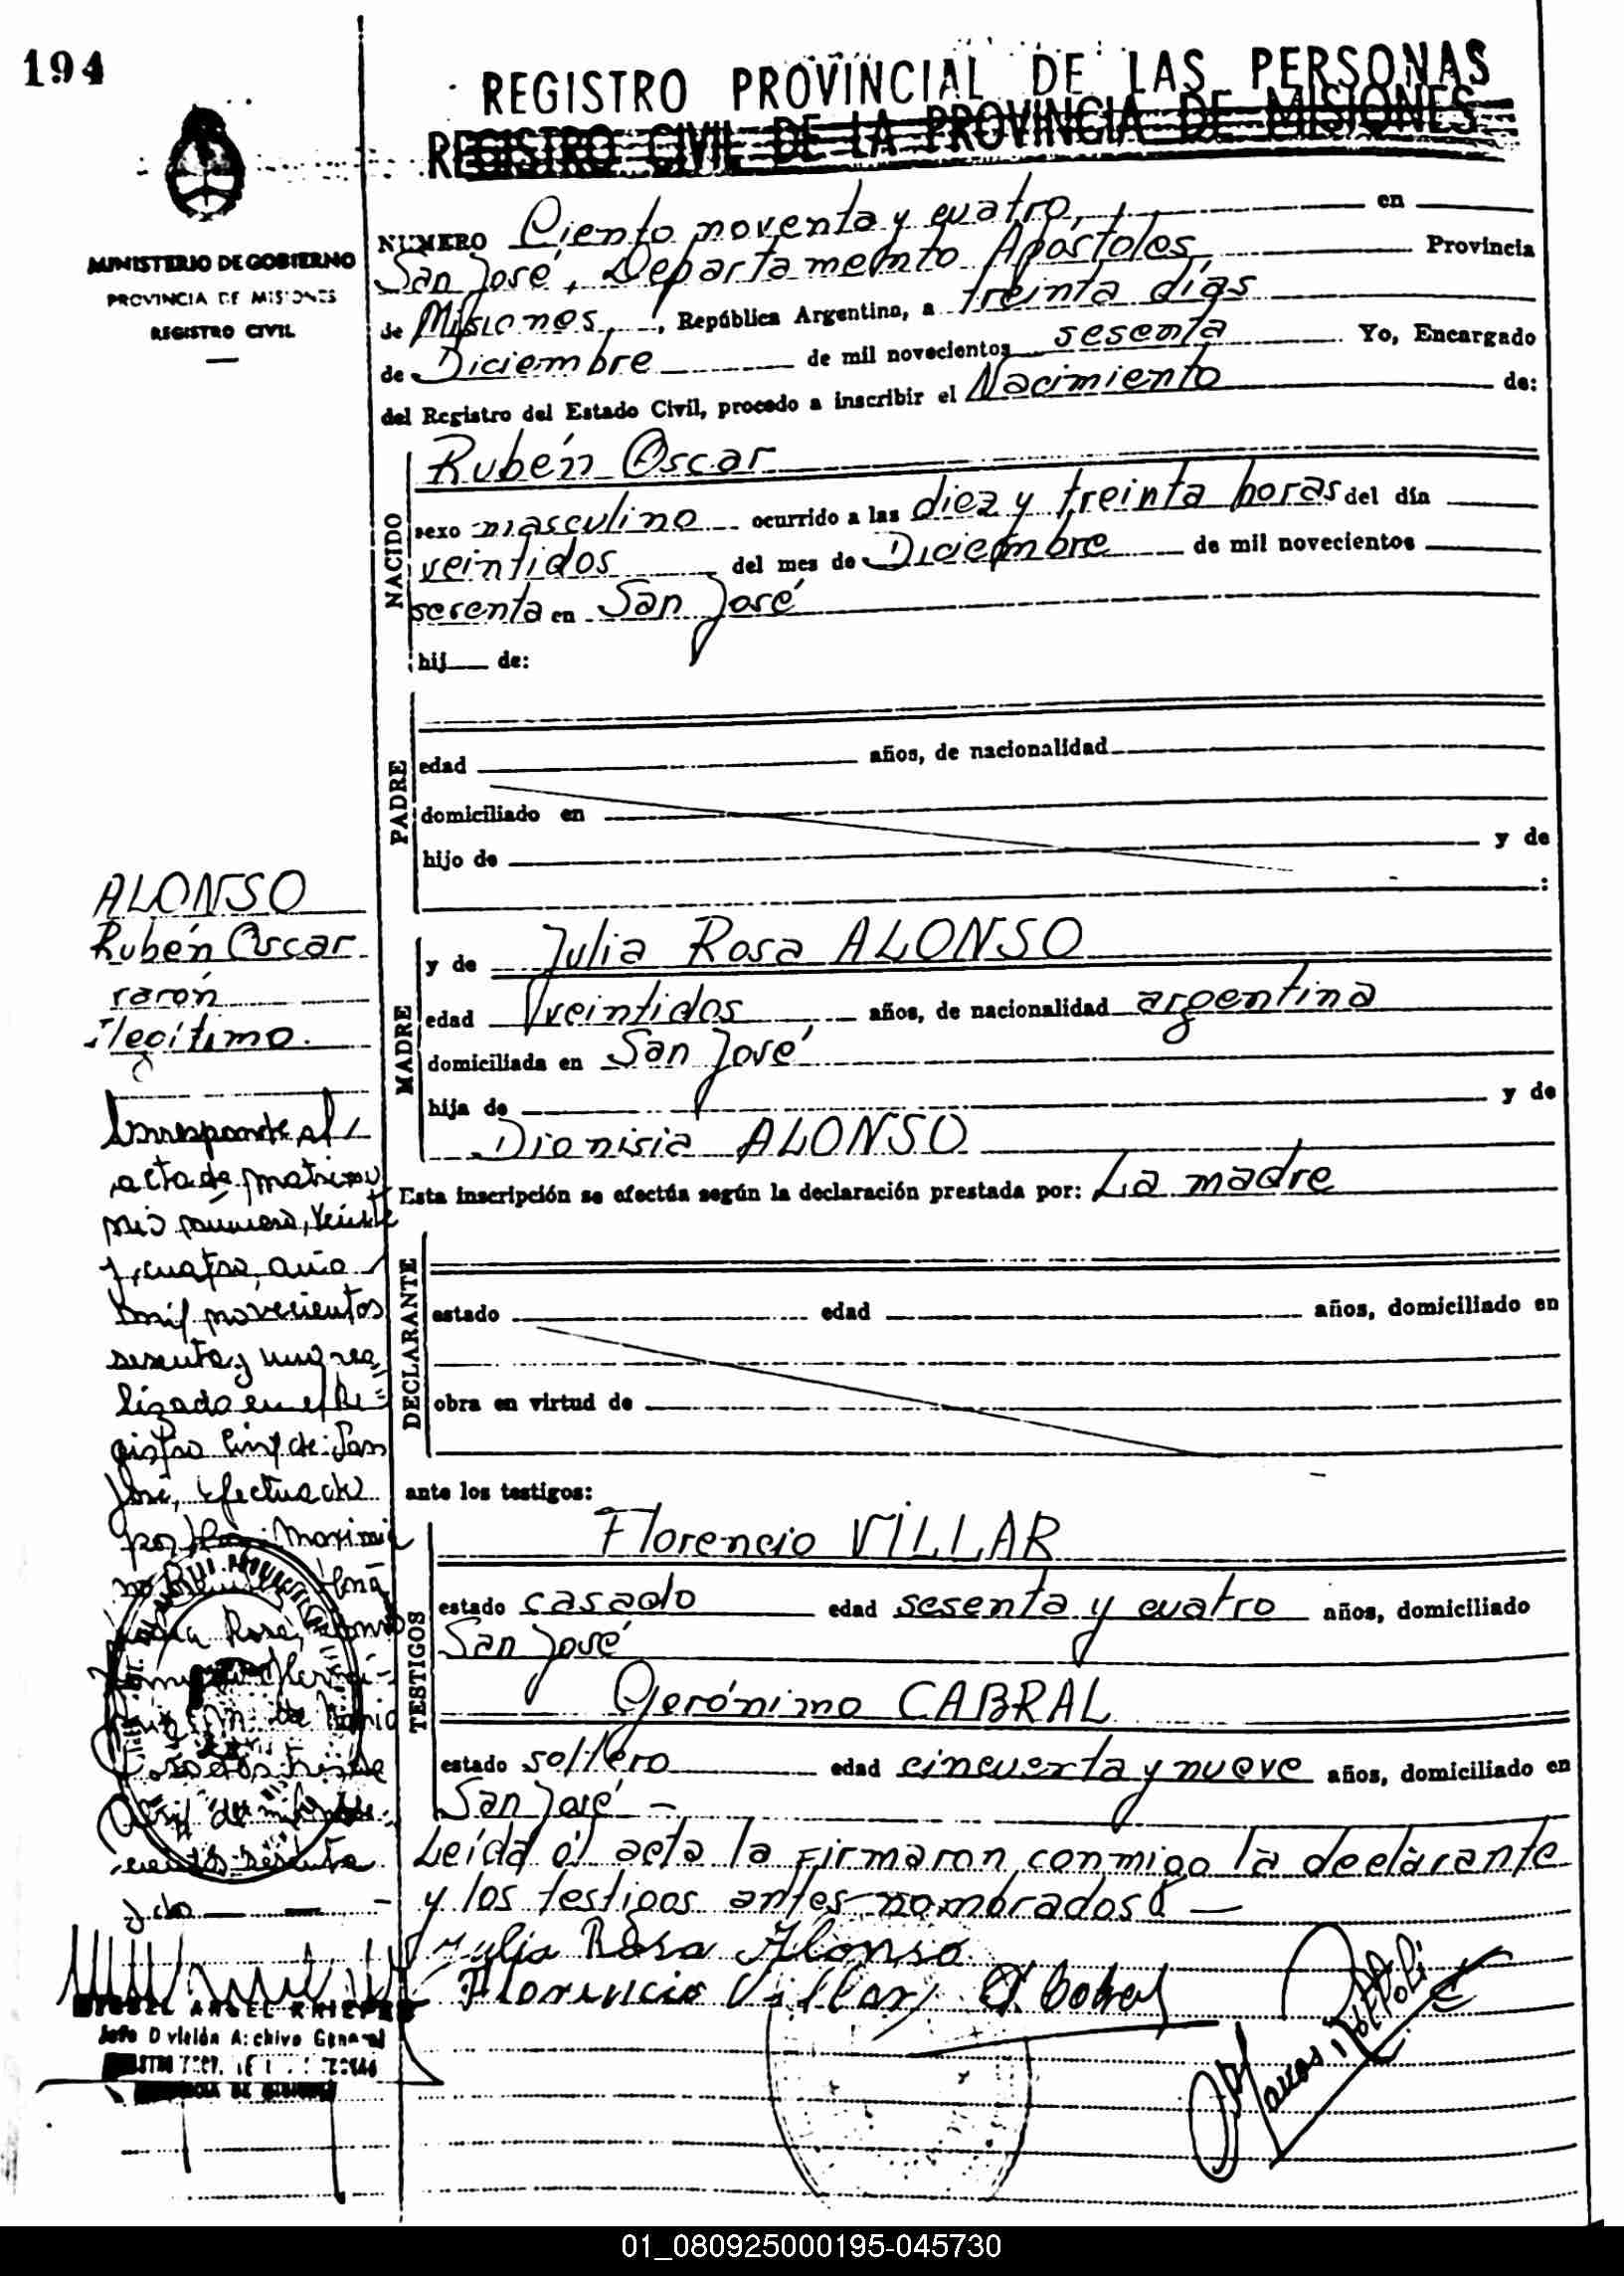 194
REGISTRO PROVINCIAL DE LAS PERSONAS
REGISTRO CIVIL DE LA PROVINCIA DE MISIONES
MINISTERIO DE GOBIERNO
PROVINCIA DE MISIONES
REGISTRO CIVIL
NUMERO Ciento noventa y cuatro, en
San José, Departamento Apóstoles, Provincia
de Misiones, , República Argentina, a treinta días
de Diciembre de mil novecientos sesenta Yo, Encargado
del Registro del Estado Civil, procedo a inscribir el Nacimiento de:
NACIDO
Rubén Oscar
sexo masculino ocurrido a las diez y treinta horas del día
veintidos del mes de Diciembre de mil novecientos
sesenta en San José
hij de:
PADRE
edad años, de nacionalidad
domiciliado en
hijo de y de
:
ALONSO
Rubén Oscar
varón
Ilegítimo.
MADRE
y de Julia Rosa ALONSO
edad veintidos años, de nacionalidad argentina
domiciliada en San José
hija de y de
Dionisia ALONSO
Esta inscripción se efectúa según la declaración prestada por: La madre
DECLARANTE
estado edad años, domiciliado en
obra en virtud de
ante los testigos:
TESTIGOS
Florencio VILLAR
estado casado edad sesenta y cuatro años, domiciliado
San José
Gerónimo CABRAL
estado soltero edad cincuenta y nueve años, domiciliado en
San José -
Leída el acta la firmaron conmigo la declarante
y los testigos antes nombrados
Julia Rosa Alonso
Florencio Villar
Corresponde al
acta de matrimo
nio número, veinte
y cuatro, año
mil novecientos
sesenta y uno rea
lizado en el Re=
gistro Civil de San
José, efectuado
por
Rosa
sesenta
y do
MIGUEL ANGEL
Jefe División Archivo General
01_080925000195-045730